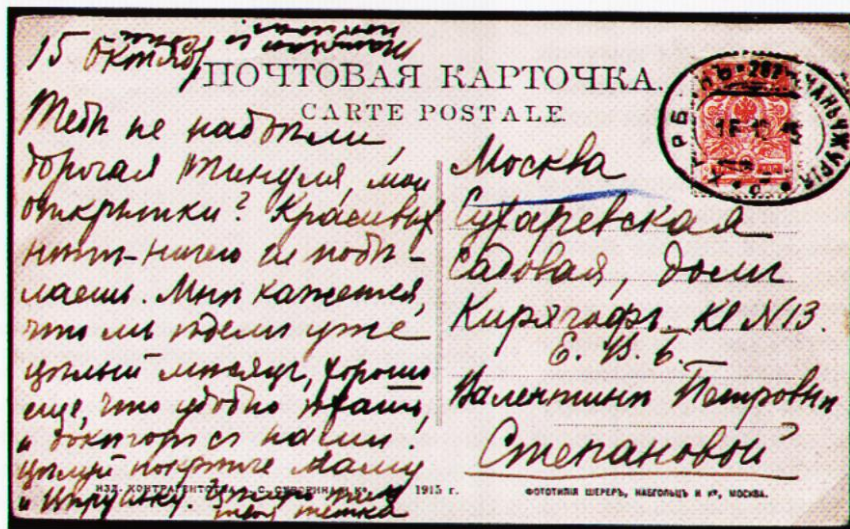 15 Октября
ПОЧТОВАЯ КАРТОЧКА.
CARTE POSTALE.
Тебѣ не надоѣли,
дорогая Тинуля, мои
открытки? Красивых
нѣтъ – ничего не подѣ-
лаешь. Мнѣ кажется,
что мы ѣдем уже
цѣлый мѣсяцъ, хорошо
еще, что удобно ѣхать,
и докторъ съ нами.
Цѣлуй покрѣпче Маму
и
твоя тетка
Москва
Сухаревская
Садовая, домъ
Кирхгофъ. кв N 13.
Е. В. Б.
Валентинѣ Петровнѣ
Степановой
ИЗД. КОНТРАГЕНТСТВА А. С. СУВОРИНА и Кº 1915 г.
ФОТОТИПІЯ ШЕРЕРЪ, НАБГОЛЬЦЪ И Кº, МОСКВА.